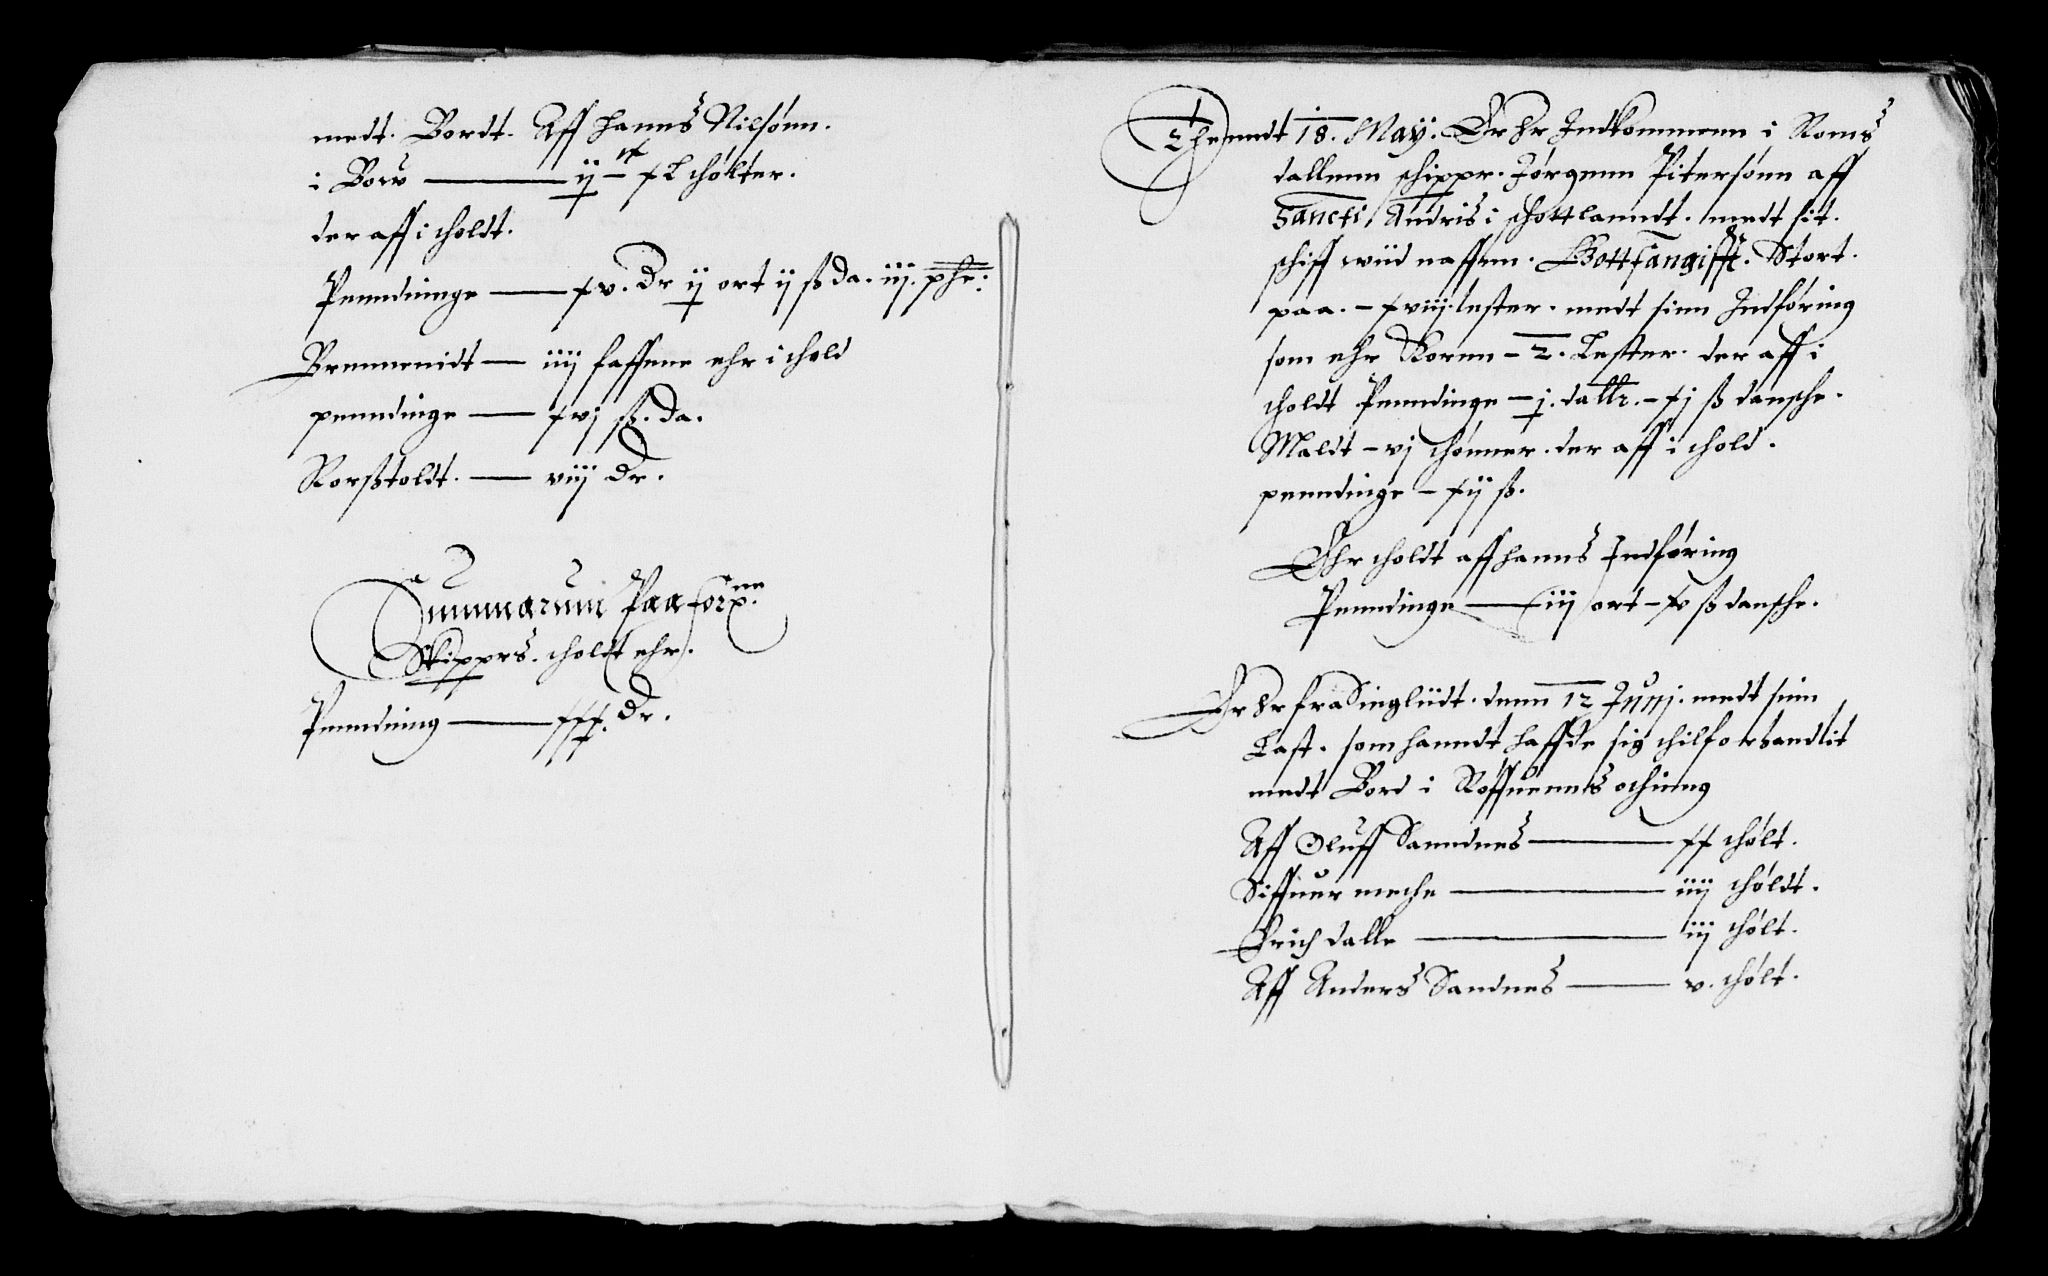 medt. Bordt. Aff Hanns Nilsønn.
i Borv — ij c xl thølter.
der aff i tholdt.
Penndinge — xv. Dr ij ort ij ß da. iij. phe:
Brennenidt — iiij fassenn ehr i thold
penndinge — xvj ß. da.
Korßtoldt. — viij Dr.
Summarum Paa forne
Skipprs. tholdt ehr.
Penndning — xxx. Dr.
Thenndt 18. May. Er Hr Indkommenn i Roms
dallenn schippr. Jørgenn Pitersønn aff
Sancti Andris i schottlanndt. medt sit.
schiff wiid naffnn. Gottfangifft. Stort.
paa. – xviij. lester. medt sinn Indføring
som ehr Kornn – 2. Lester. der aff i
tholdt Penndinge – j. dallr. – xj ß dansche.
Maldt – vj thønner. der aff i thold.
penndinge – xij ß.
Ehr tholdt aff hanns Indføring
Penndinge — iij ort – xv ß dansche.
Er Hr fra Singlüdt. denn 12 Junj. medt sinn
Last. som hanndt haffde sig thilforhandlit
medt Bord i Roffuenns othinng
Aff Oluff Sanndnes — xx thølt.
Siffuer meche — iiij thøldt.
Erich dalle — iij thølt.
Aff Anders Sandnes — v. thølt.